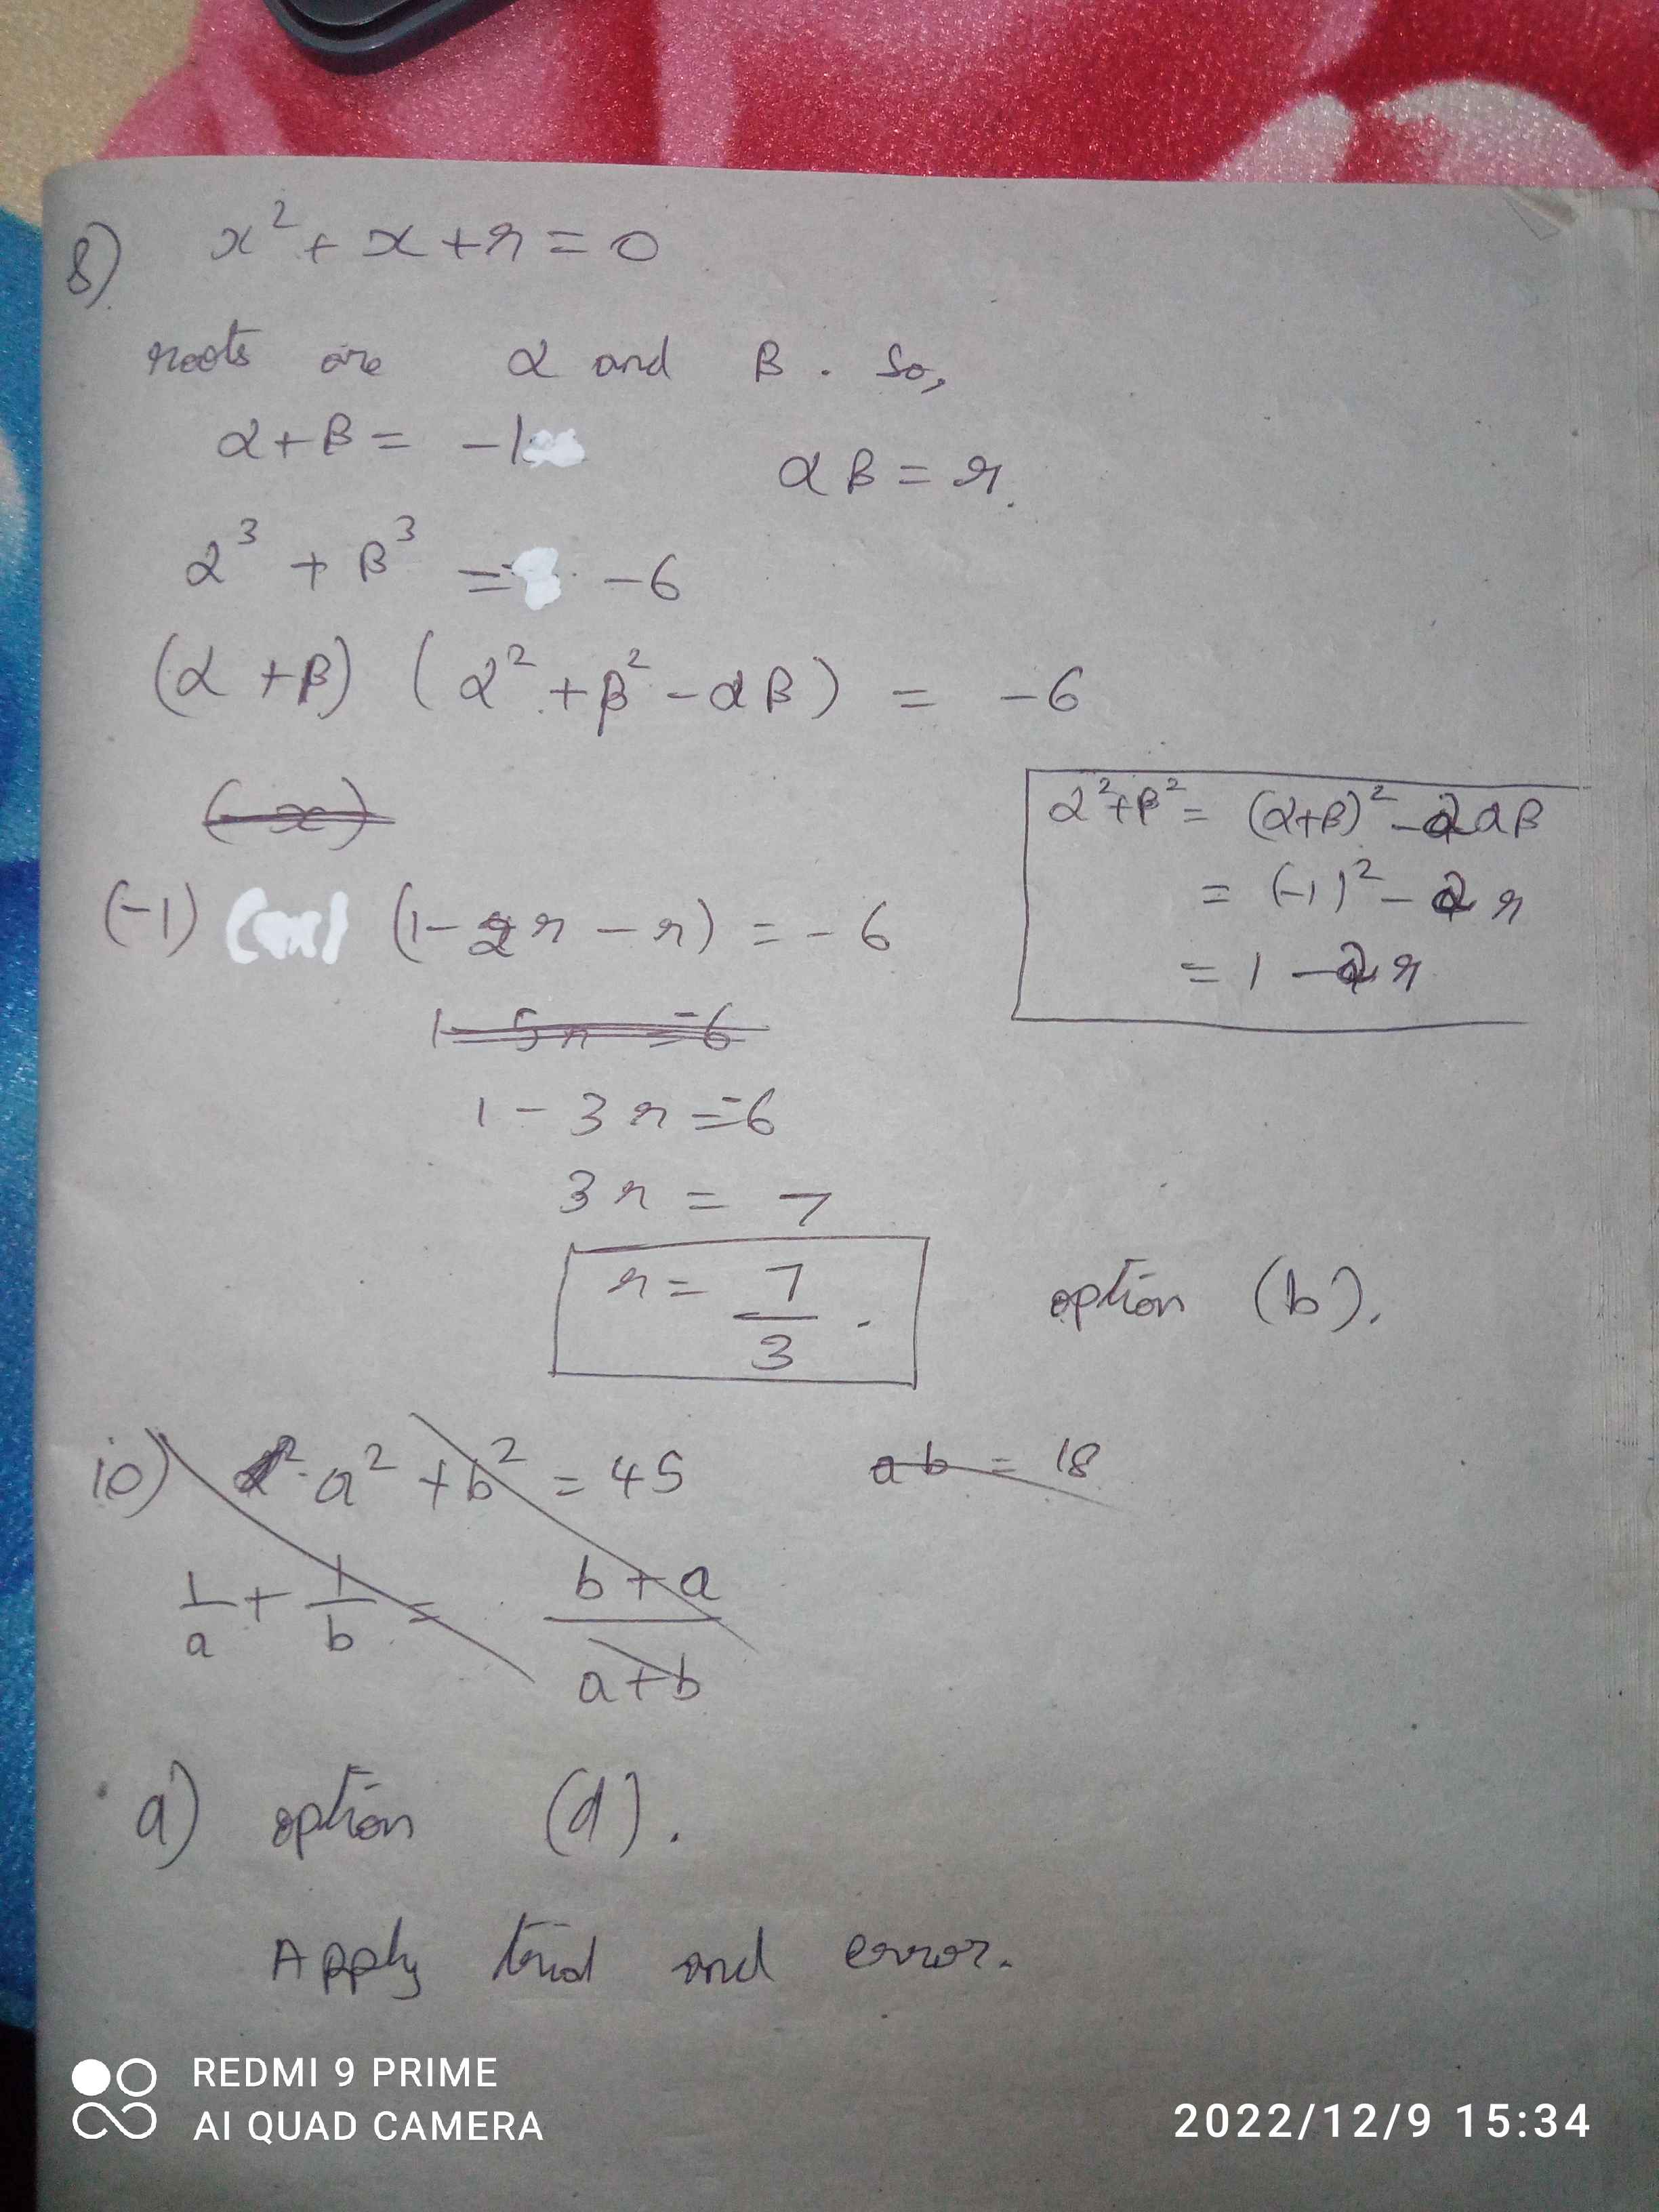 8) x² + x + r = 0
roots are α and β. So,
α + β = -1
αβ = r.
α³ + β³ = -6
(α + β) (α² + β² - αβ) = -6
(-x)
α² + β² = (α+β)² - 2αβ
= (-1)² - 2r
= 1 - 2r
(-1) (1 - 2r - r) = -6
1 - 5r = -6
1 - 3r = -6
3r = 7
r = 7/3. option (b).
10) a² + b² = 45 ab = 18
1/a + 1/b = b+a/a+b
a) option (d).
Apply trial and error.
REDMI 9 PRIME
AI QUAD CAMERA
2022/12/9 15:34